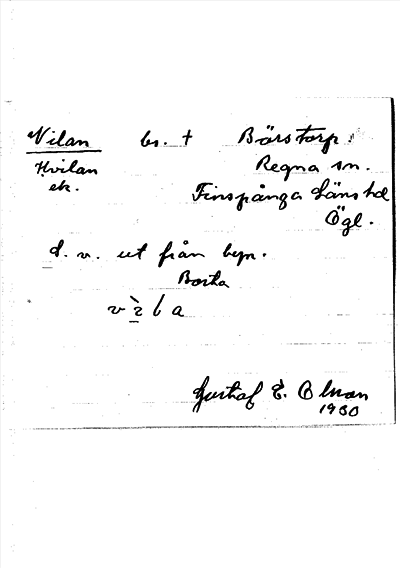 Vilan bs. † Börstorp
Hvilan Regna sn.
ek. Finspånga läns hd
Ögl.
d. v. ut från byn.
Borta
Gustaf E. Olsson
1930